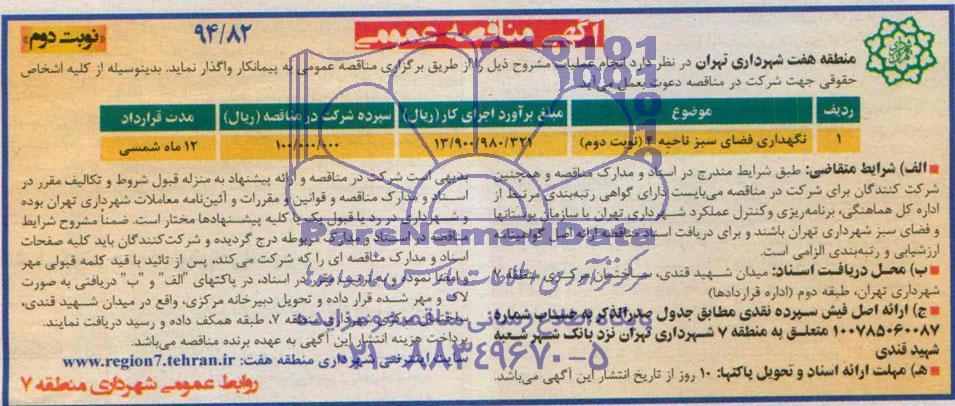 آگهی مناقصه عمومی
۹۴/۸۲
«نوبت دوم»
منطقه هفت شهرداری تهران در نظر دارد انجام عملیات مشروح ذیل را از طریق برگزاری مناقصه عمومی به پیمانکار واگذار نماید. بدینوسیله از کلیه اشخاص
حقوقی جهت شرکت در مناقصه دعوت بعمل می‌آید.
ردیف موضوع مبلغ برآورد اجرای کار (ریال) سپرده شرکت در مناقصه (ریال) مدت قرارداد
۱ نگهداری فضای سبز ناحیه ۴ (نوبت دوم) ۱۳/۹۰۰/۹۸۰/۳۲۱ ۱۰۰/۰۰۰/۰۰۰ ۱۲ ماه شمسی
الف) شرایط متقاضی: طبق شرایط مندرج در اسناد و مدارک مناقصه و همچنین
شرکت کنندگان برای شرکت در مناقصه می‌بایست دارای گواهی رتبه‌بندی مرتبط از
اداره کل هماهنگی، برنامه‌ریزی وکنترل عملکرد شهرداری تهران یا سازمان بوستانها
و فضای سبز شهرداری تهران باشند و برای دریافت اسناد مناقصه ارائه اصل گواهینامه
ارزشیابی و رتبه‌بندی الزامی است.
ب) محل دریافت اسناد: میدان شهید قندی، ساختمان مرکزی منطقه ۷
شهرداری تهران، طبقه دوم (اداره قراردادها)
ج) ارائه اصل فیش سپرده نقدی مطابق جدول صدرالذکر به حساب شماره
۱۰۰۷۸۵۰۶۰۰۸۷ متعلق به منطقه ۷ شهرداری تهران نزد بانک شهر شعبه
شهید قندی
هـ) مهلت ارائه اسناد و تحویل پاکتها: ۱۰ روز از تاریخ انتشار این آگهی می‌باشد.
بدیهی است شرکت در مناقصه و ارائه پیشنهاد به منزله قبول شروط و تکالیف مقرر در
اسناد و مدارک مناقصه و قوانین و مقررات و آئین‌نامه معاملات شهرداری تهران بوده
و شهرداری در رد یا قبول یک یا کلیه پیشنهادها مختار است. ضمنا مشروح شرایط
مناقصه در اسناد و مدارک مربوطه درج گردیده و شرکت‌کنندگان باید کلیه صفحات
اسناد و مدارک مناقصه ای را که شرکت می‌کند، پس از تائید با قید کلمه قبولی مهر
و امضا نموده و به ترتیب مقرر در اسناد، در پاکتهای "الف" و "ب" دریافتی به صورت
لاک و مهر شده قرار داده و تحویل دبیرخانه مرکزی، واقع در میدان شهید قندی،
ساختمان مرکزی شهرداری منطقه ۷، طبقه همکف داده و رسید دریافت نمایند.
پرداخت هزینه انتشار این آگهی به عهده برنده مناقصه می‌باشد.
سایت اینترنتی شهرداری منطقه هفت: www.region7.tehran.ir
روابط عمومی شهرداری منطقه ۷
ParsNamadData
پایگاه اطلاع رسانی مناقصه و مزایده
۰۲۱-۸۸۳۴۹۶۷۰-۵